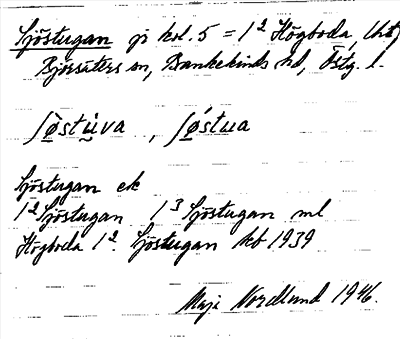 Sjöstugan på kol. 5 = 1² Högboda, lht,
Björsäters sn, Bankekinds hd, Östg. l.
ʃøstu̇va, ʃøstua
Sjöstugan ek
1² Sjöstugan 1³ Sjöstugan ml
Högboda 1². Sjöstugan kb 1939
Maj Nordlund 1946.